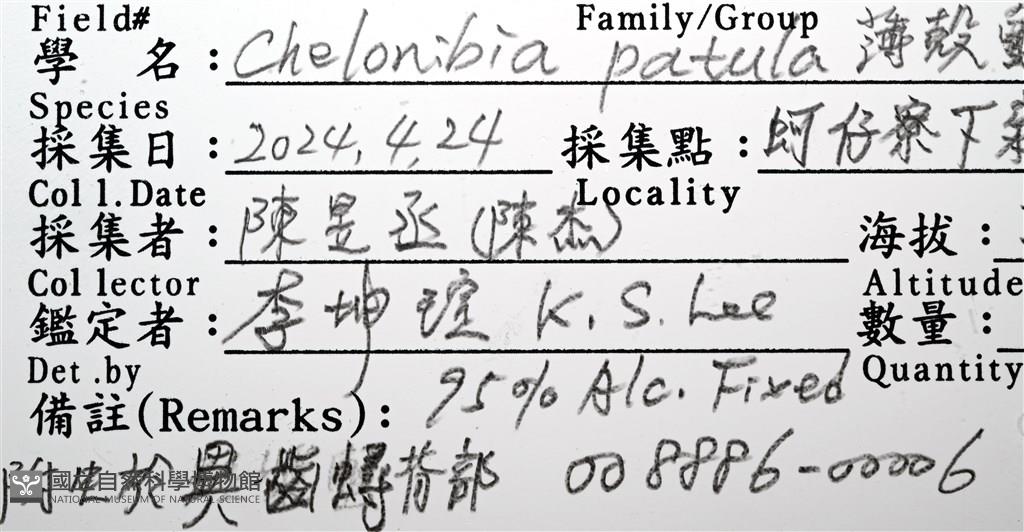 Field# Family/Group
學 名：Chelonibia patula 薄殼
Species
採集日：2024.4.24 採集點：蚵仔寮下
Coll.Date Locality
採集者：陳昱丞(陳杰) 海拔：
Collector Altitude
鑑定者：李坤瑄 K. S. Lee 數量：
Det.by Quantity
95% Alc. Fixed
備註(Remarks)：
附生於異齒蟳背部 008886-00006
國立自然科學博物館
NATIONAL MUSEUM OF NATURAL SCIENCE